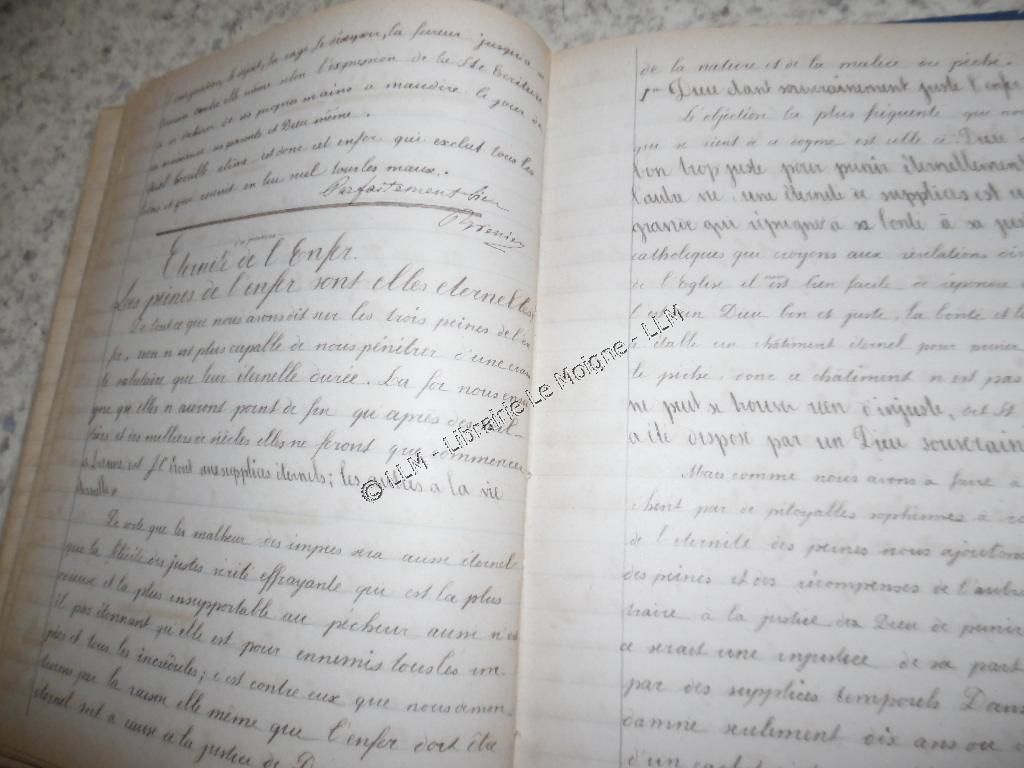 le dépit, la rage, le désespoir, la fureur jusqu'à se
contre elle même selon l'expression de la Ste Ecriture
de ses propres mains a maudire le jour de
sa naissance ses parents et Dieu même.
Quel horrible donc cet enfer qui exclut tous les
biens et que réunit en lui seul tous les maux.
Parfaitement bien
Eternité de l'Enfer.
Les peines de l'enfer sont elles eternelles
De tout ce que nous avons dit sur les trois peines de l'en
fer, rien n'est plus capable de nous pénétrer d'une crain
te salutaire que leur éternelle durée. La foi nous ensei
gne qu'elles n'auront point de fin qu'après des mil-
liers et des milliers de siècles elles ne feront que commencer
dit J.C iront aux supplices éternels; les justes a la vie
éternelle.
De sorte que les malheur des impies sera aussi éternel
que la félicité des justes vérité effrayante qui est la plus
et la plus insupportable au pécheur aussi n'est
il pas étonnant qu'elle est pour ennemis tous les im
pies et tous les incrédules; c'est contre eux que nous
par la raison elle même que l'enfer doit être
éternel soit a cause de la justice de D
de la nature et de la malice du péché.
1er Dieu étant souverainement juste l'enfer
L'objection la plus fréquente que nou
que se vient à ce dogme est celle ci Dieu
bon trop juste pour punir éternellement
l'autre vie, une éternité de supplices est
grande qui répugne à sa bonté à sa jus
catholiques que croyons aux révélations
de l'Eglise il nous est bien facile de répondre
Dieu bon et juste, la bonté et la
établi un châtiment éternel pour punir
le péché, donc ce châtiment n'est pas
ne peut se trouver rien d'injuste, dit St
a été disposé par un Dieu souverain
Mais comme nous avons à faire à
chent par de pitoyables sophismes à
de l'éternité des peines nous ajoutons
des peines et des récompenses de l'autre
traire à la justice de Dieu de punir
ce serait une injustice de sa part
par des supplices temporels Dans
damne seulement dix ans ou
d'un
© LLM - Librairie Le Moigne - LLM